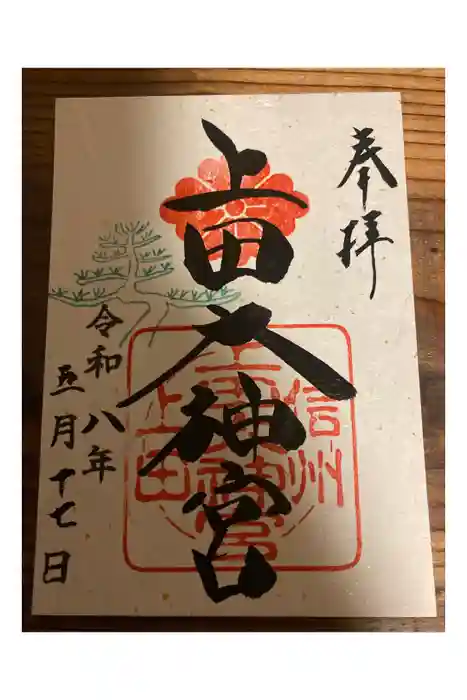 奉拝
上田大神宮
信州
上田
大神宮
令和八年
五月十七日